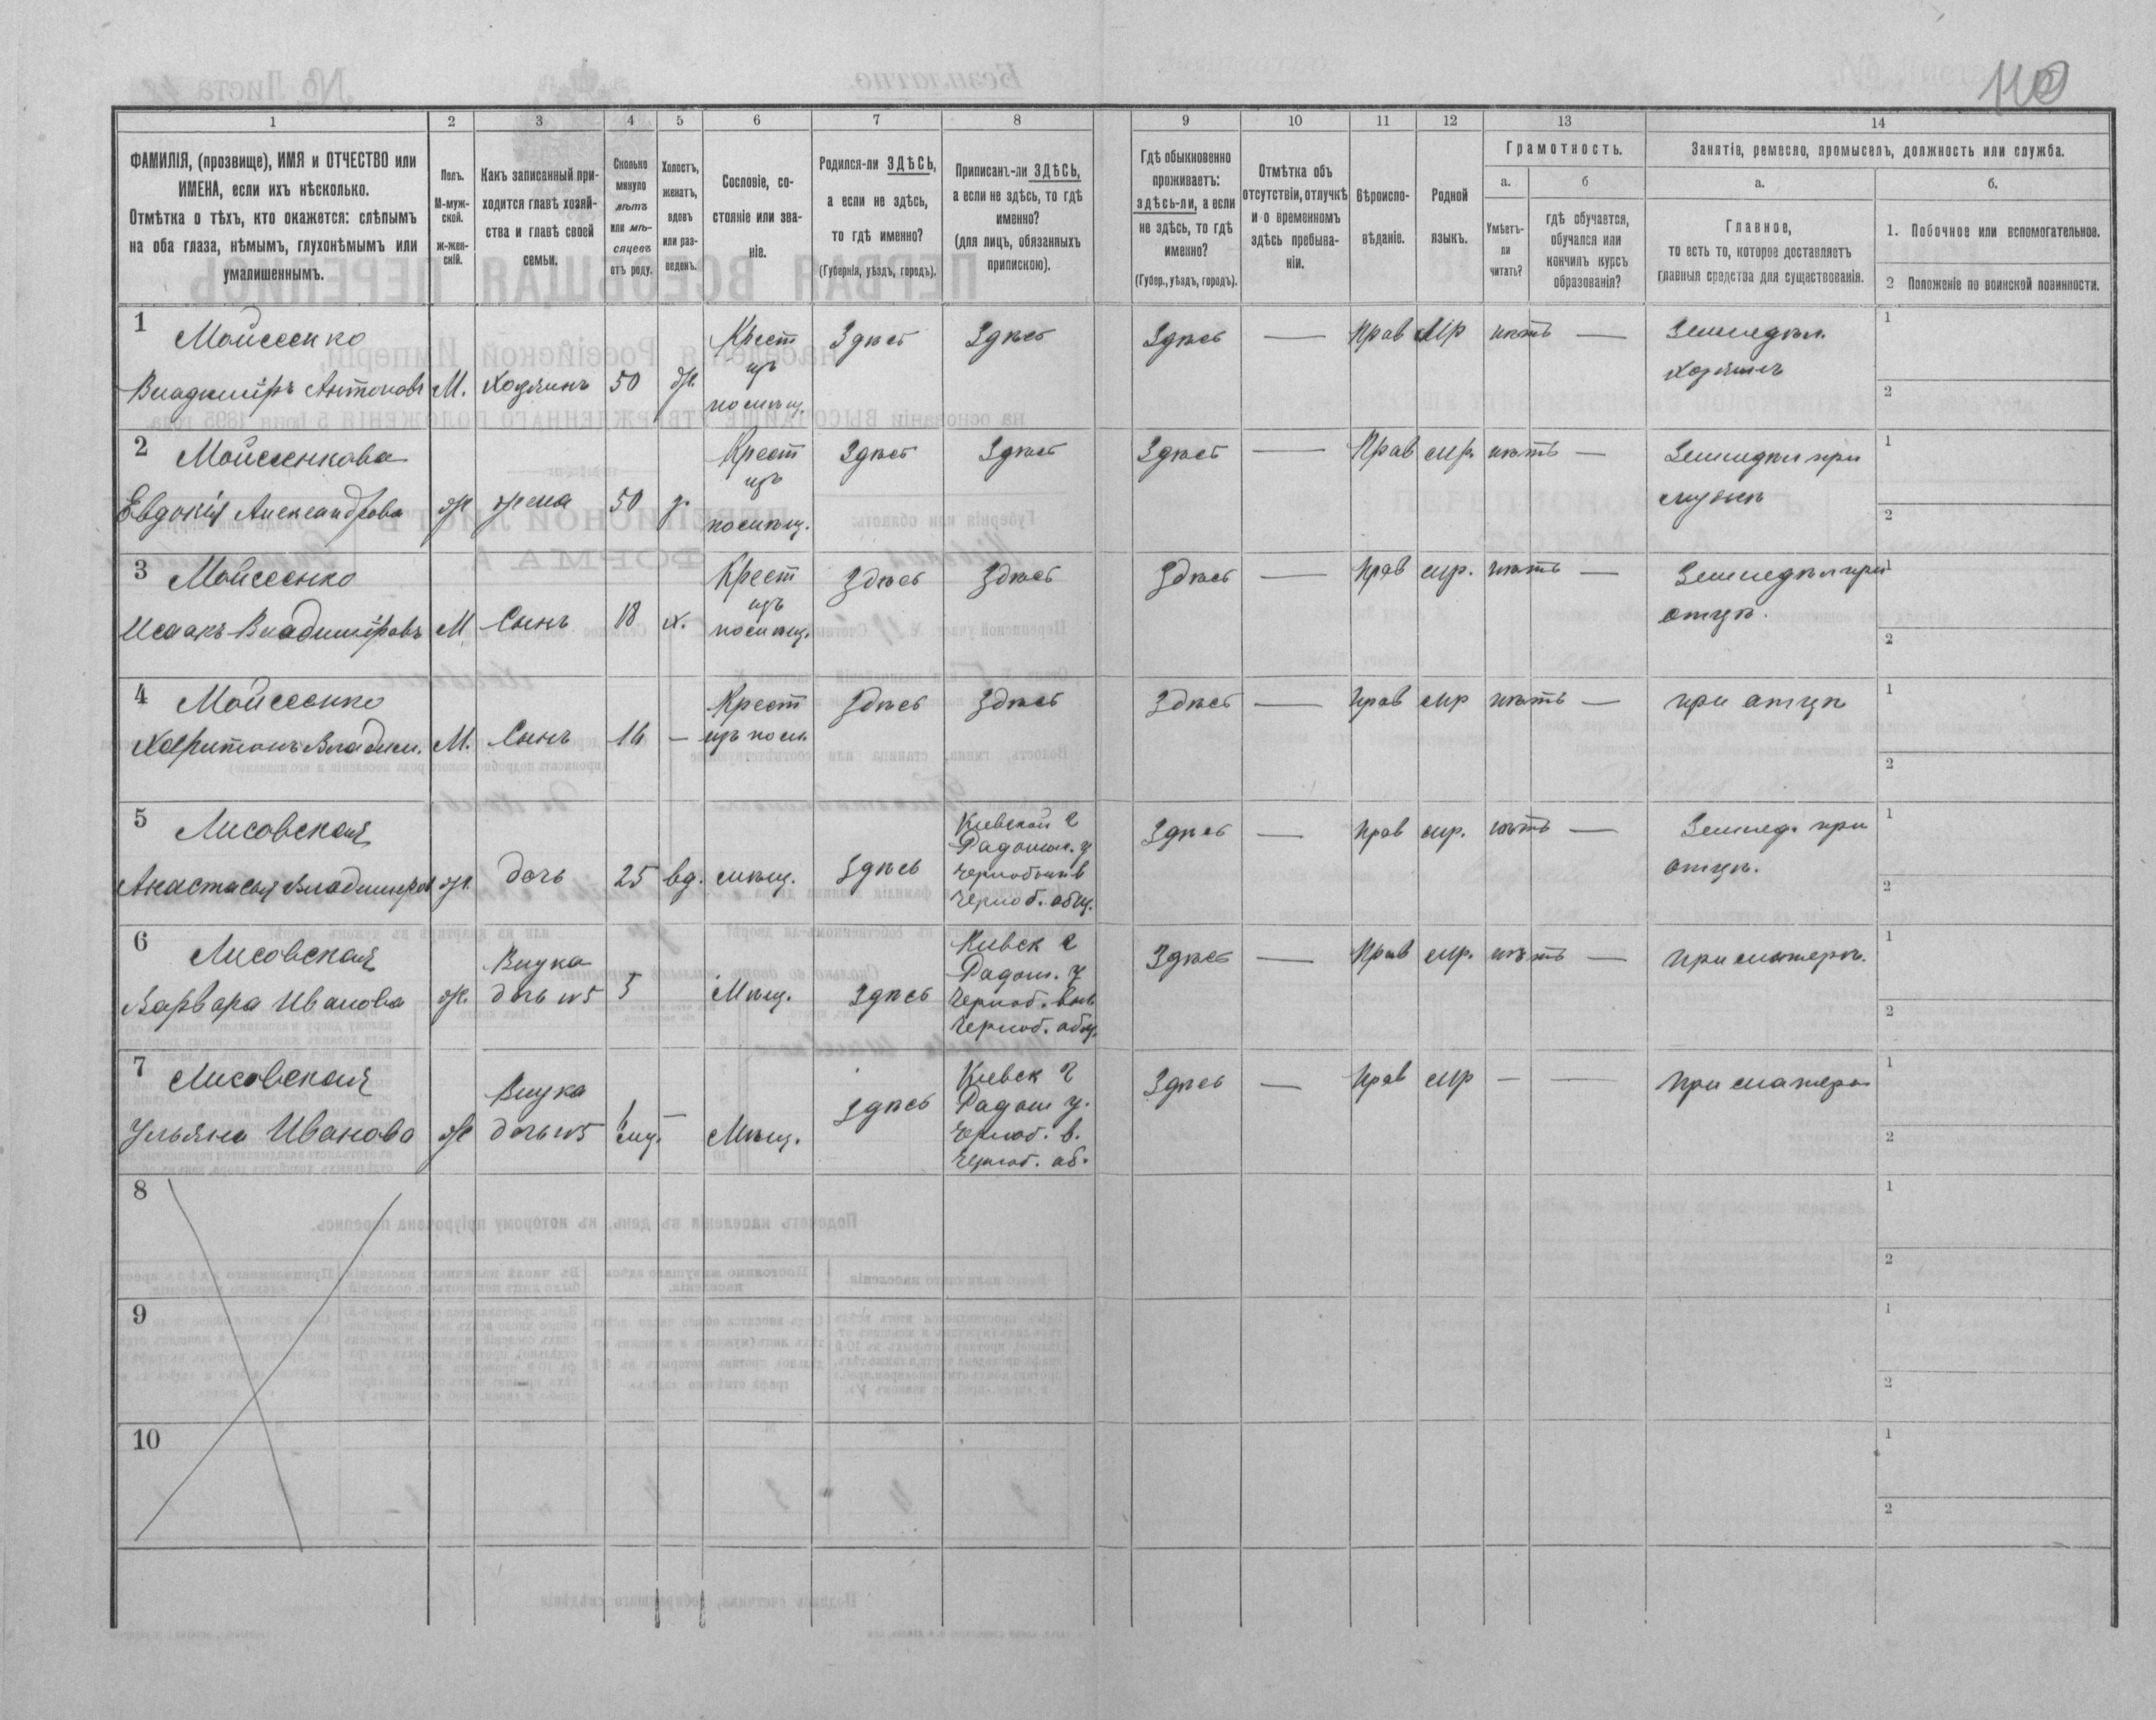 110
1 2 3 4 5 6 7 8 9 10 11 12 13 14
ФАМИЛІЯ, (прозвище), ИМЯ и ОТЧЕСТВО или ИМЕНА, если ихъ нѣсколько.
Отмѣтка о тѣхъ, кто окажется: слѣпымъ на оба глаза, нѣмымъ, глухонѣмымъ или умалишеннымъ.
Полъ. М-мужской. ж-женскій.
Какъ записанный приходится главѣ хозяйства и главѣ своей семьи.
Сколько минуло лѣтъ или мѣсяцевъ отъ роду.
Холостъ, женатъ, вдовъ или разведенъ.
Сословіе, состояніе или званіе.
Родился-ли ЗДѢСЬ, а если не здѣсь, то гдѣ именно?
(Губернія, уѣздъ, городъ).
Приписанъ-ли ЗДѢСЬ, а если не здѣсь, то гдѣ именно?
(для лицъ, обязанныхъ припискою).
Гдѣ обыкновенно проживаетъ: здѣсь-ли, а если не здѣсь, то гдѣ именно?
(Губер., уѣздъ, городъ).
Отмѣтка объ отсутствіи, отлучкѣ и о временномъ здѣсь пребываніи.
Вѣроисповѣданіе.
Родной языкъ.
Грамотность.
а. Умѣетъ-ли читать?
б гдѣ обучается, обучался или кончилъ курсъ образованія?
Занятіе, ремесло, промыселъ, должность или служба.
а. Главное, то есть то, которое доставляетъ главныя средства для существованія.
б.
1. Побочное или вспомогательное.
2 Положеніе по воинской повинности.
1 Мойсеенко Крест Здѣсь Здѣсь Здѣсь — Прав Мр нѣтъ — Земледѣл. 1
Владиміръ Антоновъ М. Хозяинъ 50 ж. изъ посѣлщ. Хозяинъ 2
2 Мойсеенкова Крест Здѣсь Здѣсь Здѣсь — Прав мр. нѣтъ — Земледѣл при 1
Евдокія Александрова ж жена 50 з. изъ поселщ. мужѣ 2
3 Мойсеенко Крест Здѣсь Здѣсь Здѣсь — Прав мр. нѣтъ — Земледѣл при 1
Исаакъ Владиміровъ М Сынъ 18 х. изъ поселщ. отцѣ. 2
4 Мойсеенко Крест Здѣсь Здѣсь Здѣсь — Прав мр нѣтъ — при отцѣ 1
Харитонъ Владим. М. Сынъ 14 — изъ посл 2
5 Лисовская Кіевской г Здѣсь — Прав мр. нѣтъ — Землед. при 1
Радомы. у
Анастасія Владиміров ж. дочь 25 вд. мѣщ. Здѣсь отцѣ. 2
Черноб. общ.
6 Лисовская Внука Кіевск г Здѣсь — Прав мр. нѣтъ — при матери. 1
Радом. у
Варвара Иванова ж. дочь №5 5 Мѣщ. Здѣсь Черноб. вол 2
Черноб. общ.
7 Лисовская Внука Кіевск г Здѣсь — Прав мр — — При матери 1
Здѣсь Радом у.
Ульяна Иванова ж дочь №5 1 мц. — Мѣщ. Черноб. в. 2
Черноб. об.
8 1
2
9 1
2
10 1
2